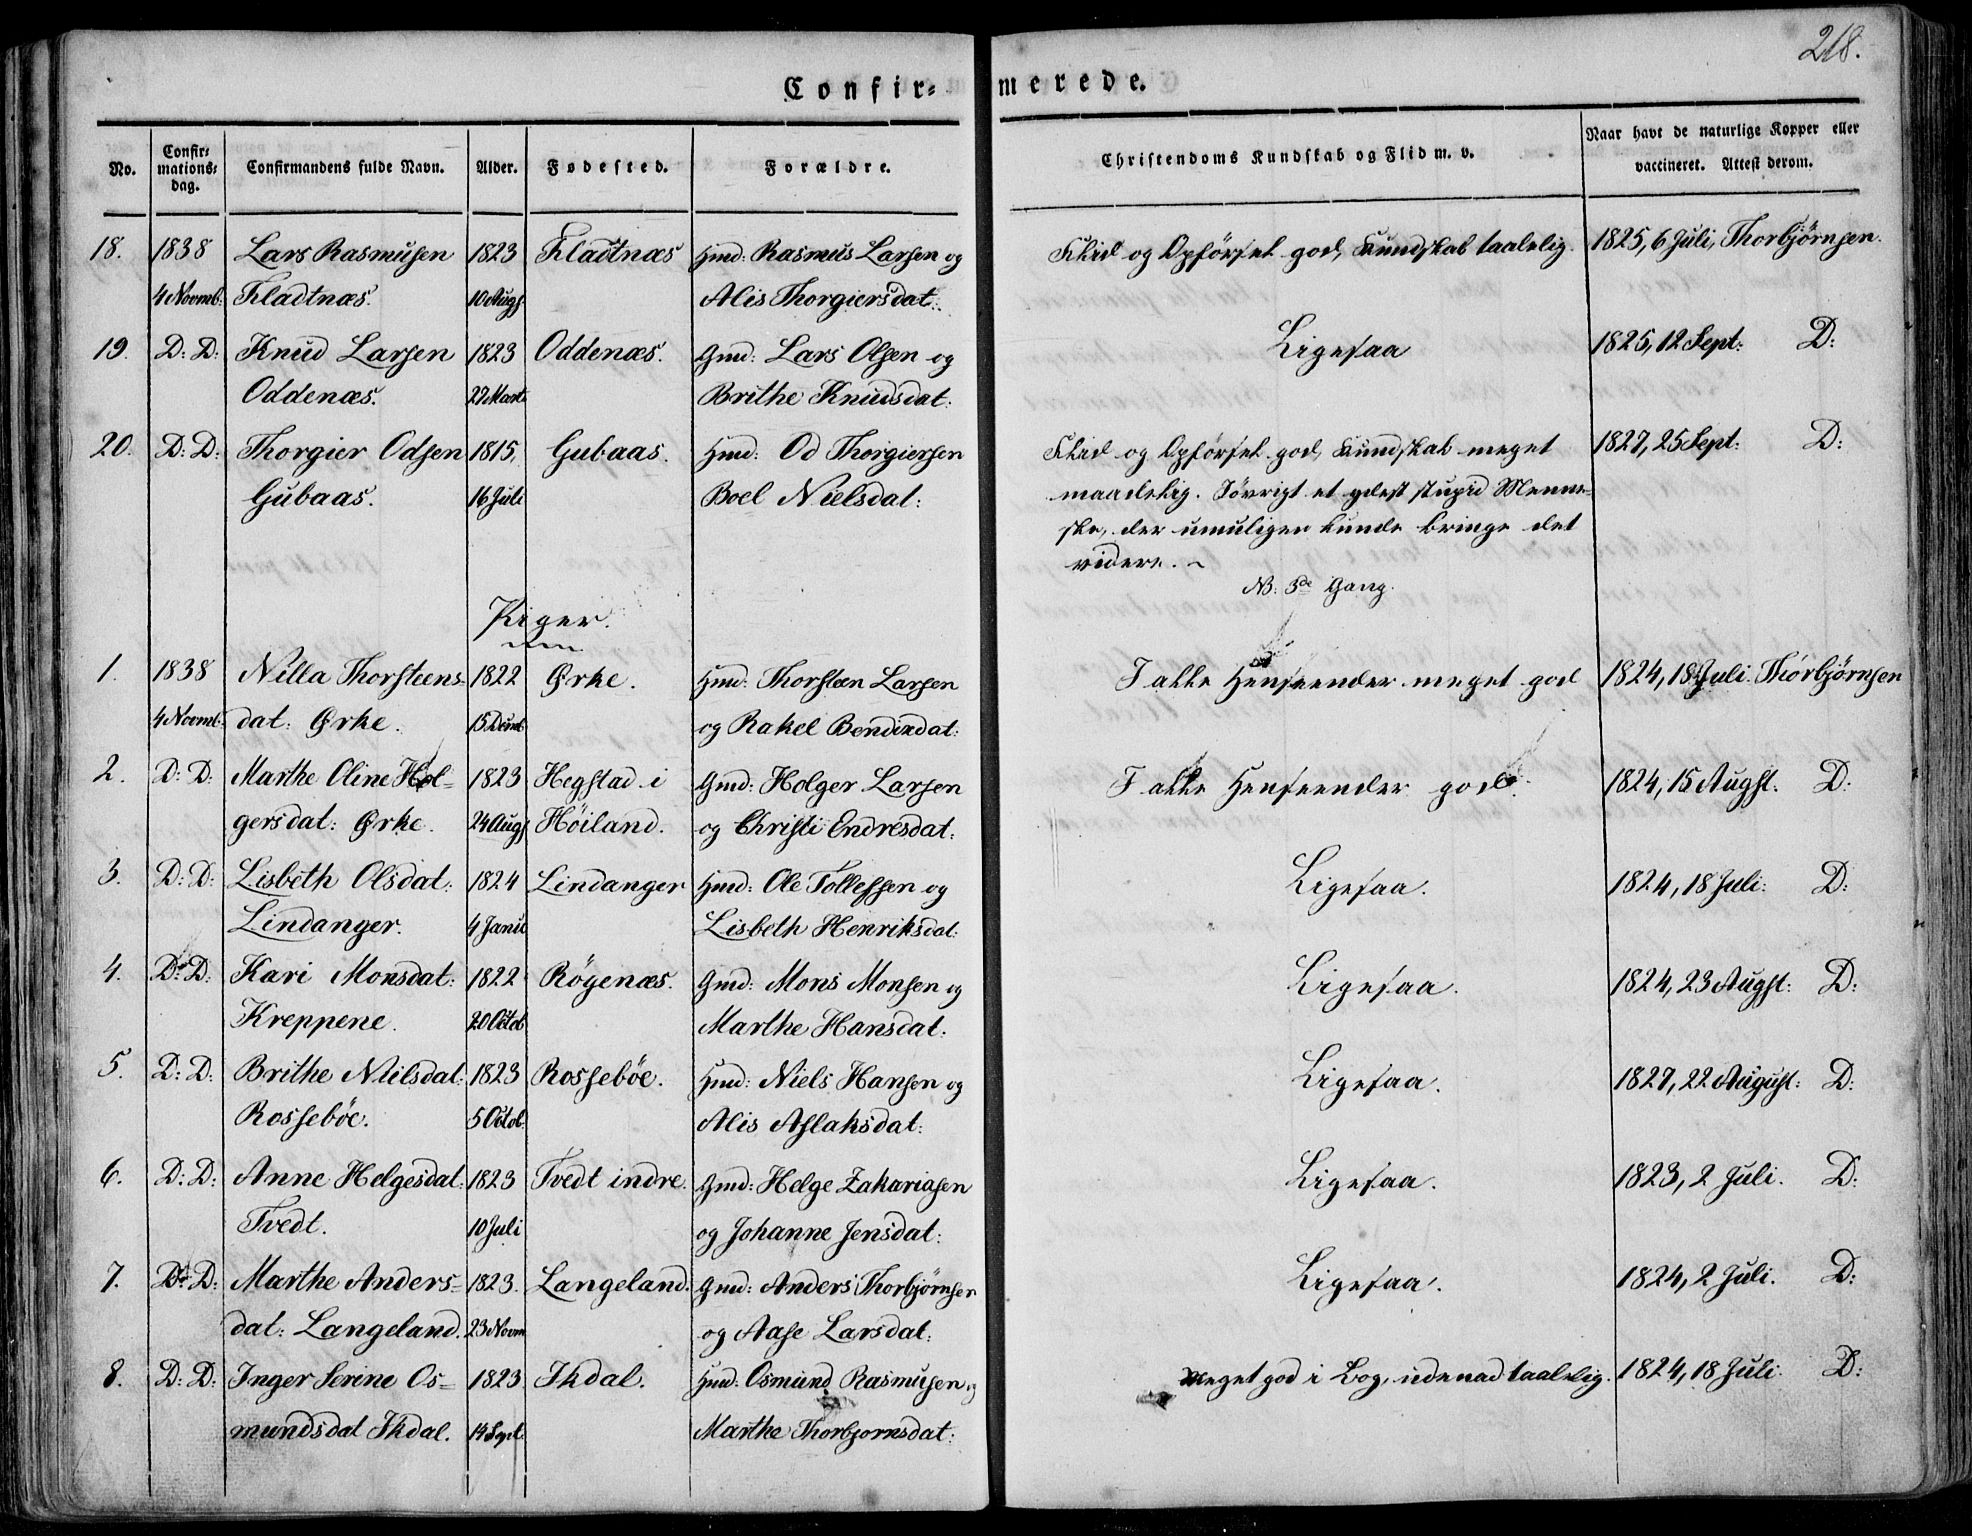 218.
Confir= merede.
No. Confir= mations= dag. Confirmandens fulde Navn. Alder. Fødested. Forældre. Christendoms Kundskab og Flid m. v. Naar havt de naturlige Kopper eller vaccineret. Attest derom.
18. 1838 Lars Rasmusen 1823 Fladtnæs Hmd: Rasmus Larsen og Flid og Opförsel god, Kundskab taalelig. 1825, 6 Juli, Thorbjørnsen.
4 Novmb: Fladtnæs. 10 Augs Alis Thorgiersdat:
19. D: D: Knud Larsen 1823 Oddenæs. Gmd: Lars Olsen og Ligesaa 1825, 12 Sept: D:
Oddenæs. 27 Marts Brithe Knudsdat:
20. D: D: Thorgier Odsen 1815, Gubaas. Hmd: Od Thorgiersen Flid og Opförsel god, Kundskab meget 1827, 25 Sept: D:
Gubaas. 16 Juli Boel Nielsdat: maadelig. Iövrigt et yderst stupid Menne=
ske, der umuligen kunde bringe det
videre.
NB: 3de Gang.
Piger.
1. 1838 Nilla Thorsteens= 1822 Ørke. Hmd: Thorsteen Larsen I alle Henseender meget god 1824, 18 Juli. Thorbjørnsen
4 Novmb: dat: Ørke. 15 Decmb og Rakel Bendixdat:
2. D: D: Marthe Oline Hol= 1823 Hegstad i Gmd: Holger Larsen I alle Henseender god. 1824, 15 Augst. D:
gersdat: Ørke. 24 Augs Höiland. og Christi Endresdat:
3. D: D: Lisbeth Olsdat: 1824 Lindanger Hmd: Ole Tollefsen og Ligesaa. 1824, 18 Juli: D:
Lindanger. 4 Janu Lisbeth Henriksdat:
4. D: D: Kari Monsdat: 1822 Rögenæs. Gmd: Mons Monsen og Ligesaa. 1824, 23 Augst: D:
Kreppene. 20 Octob Marthe Hansdat:
5. D: D: Brithe Nilsdat: 1823 Rosseböe. Hmd: Niels Hansen og Ligesaa. 1827, 22 August: D:
Rosseböe. 5 Octob: Alis Aslaksdat:
6. D: D: Anne Helgesdat: 1823 Tvedt indre. Gmd: Helge Zakariasen Ligesaa. 1823, 2 Juli. D:
Tvedt. 10 Juli og Johanne Jensdat:
7. D: D: Marthe Anders= 1823. Langeland. Gmd: Anders Thorbjørnsen Ligesaa. 1824, 2 Juli. D:
dat: Langeland. 23 Novm og Aase Larsdat:
8. D: D: Inger Serine Os= 1823 Ikdal. Hmd: Osmund Rasmusen og Meget god i Bog, udenad taalelig. 1824, 18 Juli. D:
mundsdat Ikdal. 14 Sept Marthe Thorbjornsdat: